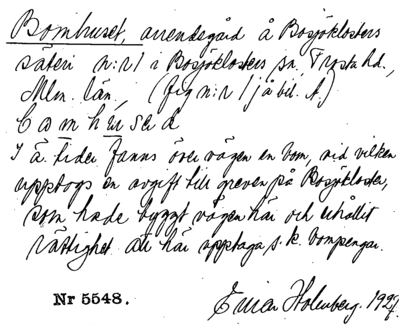 Bomhuset, arrendegård å Bosjöklosters
säteri n:r 1 i Bosjöklosters sn, Frosta hd.,
Mlm. län, (fig n:r 1 på bil. A.)
I ä. tider fanns över vägen en bom, vid vilken
upptogs en avgift till greven på Bosjökloster,
som hade byggt vägen här och erhållit
rättighet att här upptaga s.k. bompengar.
Nr 5548.
Einar Holmberg. 1927.